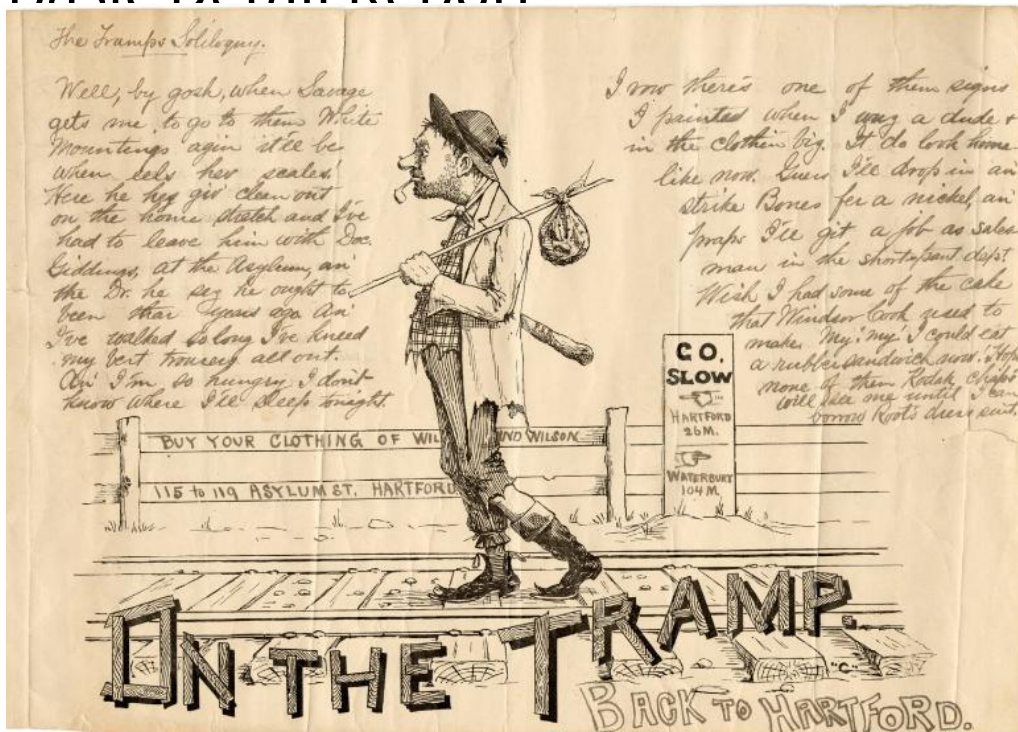 The Tramps Soliloquy.
Well, by gosh, when Savage
gets me to go to them White
Mountings agin it'll be
when eels hev scales.
Here he hez giv' clean out
on the home stretch and I've
had to leave him with Doc.
Giddings, at the Asylum, an'
the Dr. he sez he ought to
been thar years ago. An'
I've walked so long I've kneed
my best trousers all out.
An' I'm so hungry I don't
know where I'll sleep tonight.
I vow there's one of them signs
I painted when I wuz a dude &
in the clothin biz. It do look home
like now. Guess I'll drop in an'
strike Bones fer a nickel, an'
praps I'll git a job as sales
man in the short pant dep't
Wish I had some of the cake
that Windsor Cook used to
make. My! my! I could eat
a rubber sandwich now. Hope
none of them Kodak chaps
will see me until I can
borrow Root's dress suit.
GO.
SLOW
HARTFORD
26 M.
WATERBURY
104 M.
BUY YOUR CLOTHING OF WIL ND WILSON
115 to 119 ASYLUM ST. HARTFORD
ON THE TRAMP.
"C"
BACK TO HARTFORD.